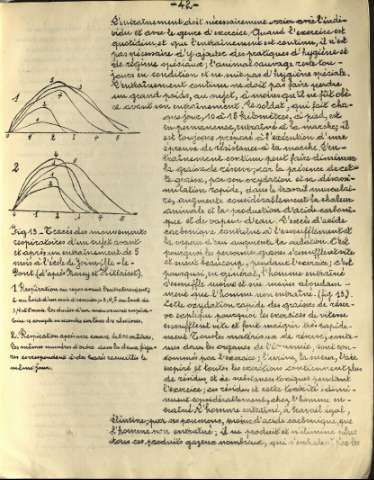 -42-
L'entraînement doit nécessairement varier avec l'indi-
vidu et avec le genre d'exercice. Quand l'exercice est
quotidien et que l'entraînement est continu, il n'est
pas nécessaire d'y ajouter des pratiques d'hygiène et
de régime spéciaux; l'animal sauvage reste tou-
jours en condition et ne suit pas d'hygiène spéciale.
L'entraînement continu ne doit pas faire perdre
un grand poids, au sujet, à moins qu'il ne fût obè-
se avant son entraînement. Le soldat, qui fait cha-
que jour, 15 à 18 kilomètres, à pied, est
en permanence, entraîné à la marche; il
est toujours préparé à l'exécution d'une
épreuve de résistance à la marche. L'en-
traînement continu peut faire diminuer
la graisse de réserve
graisse, par son oxydation et sa désassi-
milation rapide, dans le travail musculai-
re, augmente considérablement la chaleur
animale et la production d'acide carboni-
que et de vapeur d'eau. L'excès d'acide
carbonique contribue à l'essoufflement et
la vapeur d'eau augmente la sudation. C'est
pourquoi les personnes grasses s'essoufflent vite
et suent beaucoup, pendant l'exercice; c'est
pourquoi, en général, l'homme entraîné
s'essouffle moins et sue moins abondam-
ment que l'homme non entraîné. (fig. 15).
Cette oxydation rapide des graisses de réser-
ve explique pourquoi les exercices de vitesse
essoufflent vite et font maigrir très rapide-
ment
dans les organes de l'
sommés par l'exercice; l'urine, la sueur, l'air
expiré et toutes les excrétions contiennent plus
de résidus, et de substances toxiques pendant
l'exercice; ces résidus et cette toxicité dimi-
nuent considérablement, chez l'homme en-
traîné. L'homme entraîné, à travail égal,
élimine, par ses poumons, moins d'acide carbonique, que
l'homme non entraîné; il ne produit et n'élimine
tous ces produits gazeux nombreux, qui
1
1 2 3 4 5
2
Fig 15 - Tracés des mouvements
respiratoires d'un sujet avant
et après un entraînement de 5
mois à l'école de Joinville-le-
Pont (d'après Marey et Hillairet).
1. Respiration au repos avant l'entraînement;
2. Respiration après une course de 600 mètres.
Les mêmes numéros d'ordre dans les deux figu-
res correspondent à des tracés recueillis le
même jour.